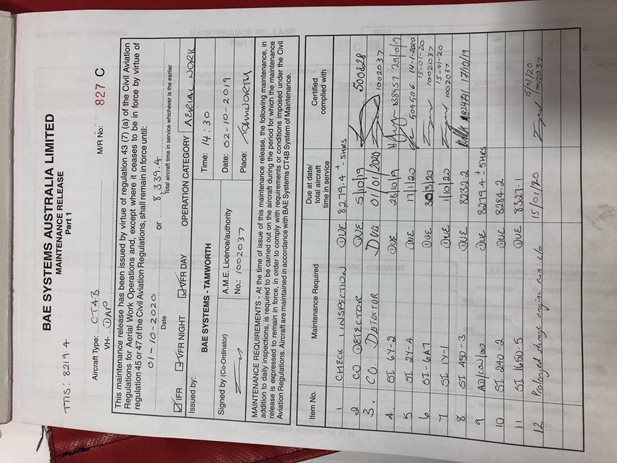 TTIS: 8219.4
BAE SYSTEMS AUSTRALIA LIMITED
MAINTENANCE RELEASE
Part 1
Aircraft Type: CT4B
VH- DAP
M/R No: 827 C
This maintenance release has been issued by virtue of regulation 43 (7) (a) of the Civil Aviation
Regulations for Aerial Work Operations and, except where it ceases to be in force by virtue of
regulation 45 or 47 of the Civil Aviation Regulations, shall remain in force until:
01-10-2020 or 8339.4
Date Total aircraft time in service whichever is the earlier
IFR VFR NIGHT VFR DAY OPERATION CATEGORY AERIAL WORK
Issued by: BAE SYSTEMS - TAMWORTH Time: 14:30
Signed by (Co-Ordinator) A.M.E. Licence/authority Date: 02-10-2019
No: 1002037 Place: TAMWORTH
MAINTENANCE REQUIREMENTS - At the time of issue of this maintenance release, the following maintenance, in
addition to daily inspections, is required to be carried out on the aircraft during the period for which the maintenance
release is expressed to remain in force, in order to comply with requirements or conditions imposed under the Civil
Aviation Regulations. Aircraft are maintained in accordance with BAE Systems CT4B System of Maintenance.
Item No. Maintenance Required Due at date/ total aircraft time in service Certified complied with
1 CHECK 1 INSPECTION DUE 8279.4 + 5HRS
2 CO DETECTOR DUE 5/10/19 500828
3. CO DETECTOR DUE 01/01/2020 1002037
4. SI 6Y-2 DUE 28/10/19
5 SI 2Y-4 DUE 17/1/20 14-1-2020
6 SI-6A7 DUE 15-01-20 1002037
7 SI 1Y-1 DUE 1/10/20 15-01-20 1002037
8 SI 450-3 DUE 8232.2 17/10/19
9 DUE 8279.4 + 5HRS
10 SI 240-2 DUE 8284.2
11 SI 1650-5 DUE 8327.1
12 Prolonged damage engine run c/o 15/01/20 15/01/20 1002037